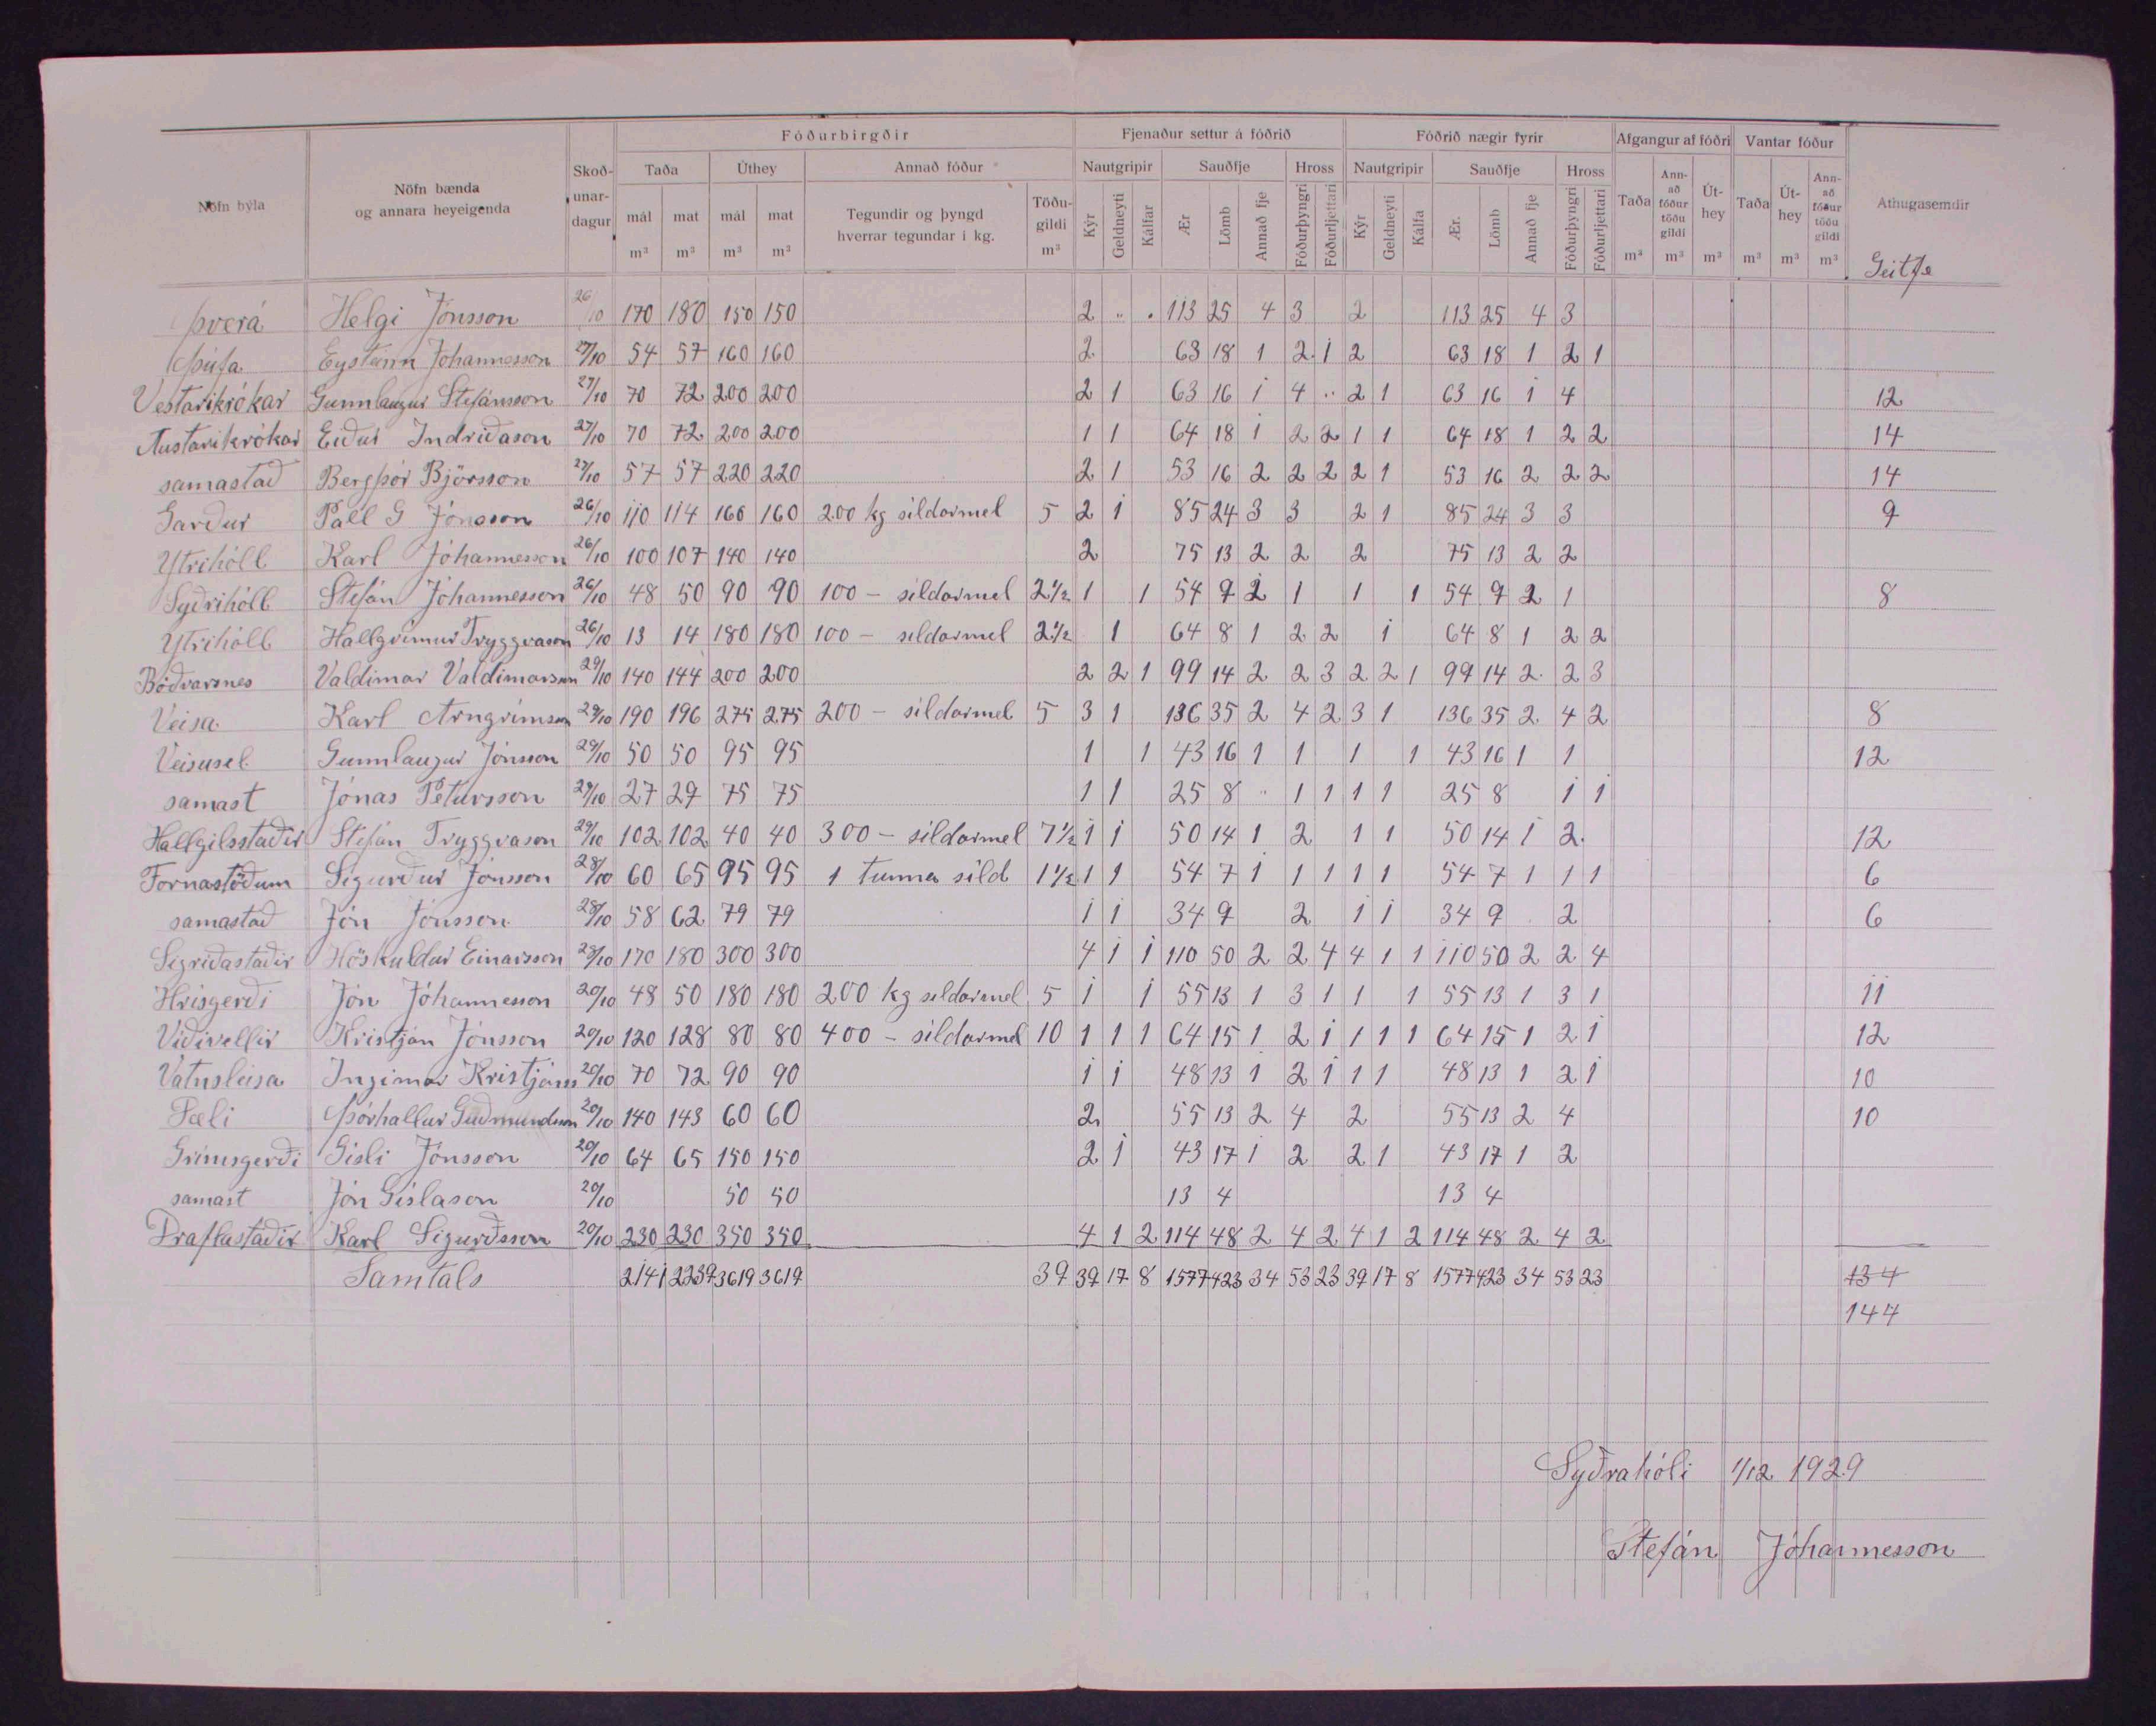 Fóðurbirgðir Fjenaður settur á fóðrið Fóðrið nægir fyrir Afgangur af fóðri Vantar fóður
Nöfn býla Nöfn bænda og annara heyeigenda Skoð-unar-dagur Taða Úthey Annað fóður Nautgripir Sauðfje Hross Nautgripir Sauðfje Hross Taða Ann-að fóður töðu gildi Út-hey Taða Út-hey Ann-að fóður töðu gildi Athugasemdir
mál mat mál mat Tegundir og þyngd hverrar tegundar í kg. Töðu-gildi Kýr Geldneyti Kálfar Ær Lömb Annað fje Fóðurþyngri Fóðurljettari Kýr Geldneyti Kálfa Ær. Lömb Annað fje Fóðurþyngri Fóðurljettari
m³ m³ m³ m³ m³ m³ m³ m³ m³ m³ m³ Geitfje
Þverá Helgi Jónsson 26/10 170 180 150 150 2 " . 113 25 4 3 2 113 25 4 3
Þúfa Eysteinn Jóhannesson 27/10 54 57 160 160 2 63 18 1 2 1 2 63 18 1 2 1
Vestarikrókar Gunnlaugur Stefánsson 27/10 70 72 200 200 2 1 63 16 1 4 " 2 1 63 16 1 4 12
Austarikrókar Eiður Indriðason 27/10 70 72 200 200 1 1 64 18 1 2 2 1 1 64 18 1 2 2 14
samastað Bergþór Björsson 27/10 57 57 220 220 2 1 53 16 2 2 2 2 1 53 16 2 2 2 14
Garður Páll G Jónsson 26/10 110 114 160 160 200 kg síldarmel 5 2 1 85 24 3 3 2 1 85 24 3 3 9
Ytrihóll Karl Jóhannesson 26/10 100 107 140 140 2 75 13 2 2 2 75 13 2 2
Syðrihóll Stefán Jóhannesson 26/10 48 50 90 90 100 – síldarmel 2½ 1 1 54 9 2 1 1 1 54 9 2 1 8
Ytrihóll Hallgrímur Tryggvason 26/10 13 14 180 180 100 – síldarmel 2½ 1 64 8 1 2 2 1 64 8 1 2 2
Böðvarsnes Valdimar Valdimarsson 29/10 140 144 200 200 2 2 1 99 14 2 2 3 2 2 1 99 14 2 2 3
Veisa Karl Arngrímsson 29/10 190 196 275 275 200 – síldarmel 5 3 1 136 35 2 4 2 3 1 136 35 2 4 2 8
Veisusel Gunnlaugur Jónsson 29/10 50 50 95 95 1 1 43 16 1 1 1 1 43 16 1 1 12
samast Jónas Petursson 29/10 27 29 75 75 1 1 25 8 " 1 1 1 1 25 8 1 1
Hallgilsstaðir Stefán Tryggvason 29/10 102 102 40 40 300 – síldarmel 7½ 1 1 50 14 1 2 1 1 50 14 1 2 12
Fornastöðum Sigurður Jónsson 28/10 60 65 95 95 1 tunna síld 1½ 1 1 54 7 1 1 1 1 1 54 7 1 1 1 6
samastað Jón Jónsson 28/10 58 62 79 79 1 1 34 9 2 1 1 34 9 2 6
Sigríðastaðir Höskuldur Einarsson 28/10 170 180 300 300 4 1 1 110 50 2 2 4 4 1 1 110 50 2 2 4
Hrísgerði Jón Jóhannesson 20/10 48 50 180 180 200 kg síldarmel 5 1 1 55 13 1 3 1 1 1 55 13 1 3 1 11
Víðivellir Kristján Jónsson 20/10 120 128 80 80 400 – síldarmel 10 1 1 1 64 15 1 2 1 1 1 1 64 15 1 2 1 12
Vatnsleisa Ingimar Kristjáns 20/10 70 72 90 90 1 1 48 13 1 2 1 1 1 48 13 1 2 1 10
Sæli Þórhallur Guðmundsson 20/10 140 143 60 60 2 55 13 2 4 2 55 13 2 4 10
Grímsgerði Gísli Jónsson 20/10 64 65 150 150 2 1 43 17 1 2 2 1 43 17 1 2
samast Jón Gíslason 20/10 50 50 13 4 13 4
Draflastaðir Karl Sigurðsson 20/10 230 230 350 350 4 1 2 114 48 2 4 2 4 1 2 114 48 2 4 2
Samtals 2141 2239 3619 3619 39 39 17 8 1577 423 34 53 23 39 17 8 1577 423 34 53 23 134
144
Syðrahóli 1/12 1929
Stefán Jóhannesson